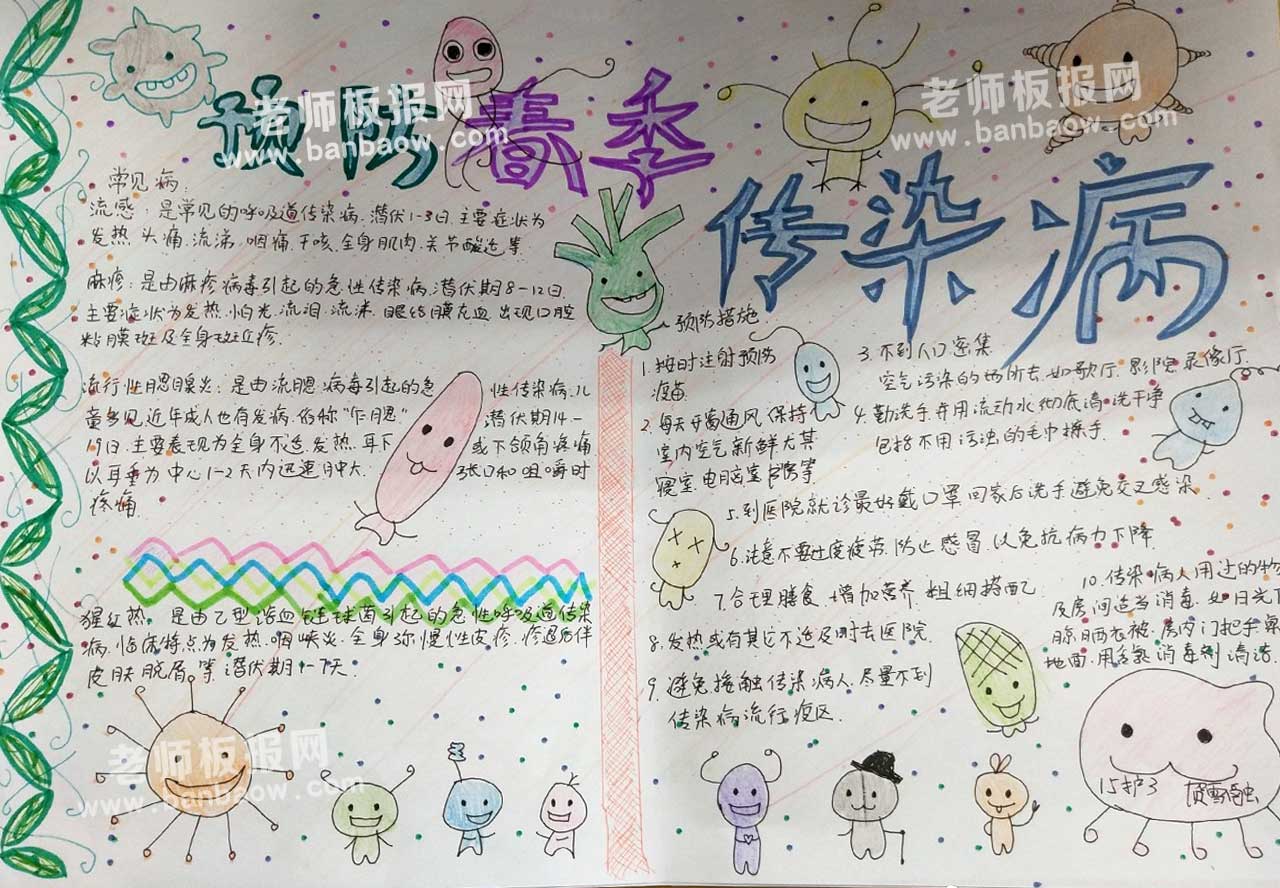 预防春季
传染病
老师板报网
www.banbaow.com
老师板报网
www.banbaow.com
常见病:
流感:是常见的呼吸道传染病.潜伏1-3日.主要症状为
发热.头痛.流涕.咽痛.干咳.全身肌肉.关节酸
麻疹:是由麻疹病毒引起的急性传染病.潜伏期8-12日.
主要症状为发热.怕光.流泪.流涕.眼结膜充血.出现口腔
粘膜斑及全身斑丘疹.
流行性腮腺炎:是由流腮病毒引起的急性传染病.儿
童多见.近年成人也有发病.俗称"乍腮" 潜伏期14-
19日.主要表现为全身不适.发热.耳下或下颌角疼痛
以耳垂为中心1-2天内迅速肿大.张口和咀嚼时
疼痛
猩红热:是由乙型溶血链球菌引起的急性呼吸道传染
病,临床特点为发热.咽峡炎.全身弥慢性皮疹.疹退后伴
皮肤脱屑等.潜伏期1-7天.
预防措施
1.按时注射预防
疫苗
2.每天开窗通风.保持
室内空气新鲜尤其
寝室.电脑室.等
3.不到人口密集
空气污染的场所去.如歌厅.影院.录像厅.
4.勤洗手并用流动水彻底清洗干净
包括不用污浊的毛巾擦手.
5.到医院就诊最好戴口罩回家后洗手避免交叉感染
6.注意不要过度疲劳.防止感冒.以免抗病力下降
7.合理膳食.增加营养.粗细搭配
8.发热或有其它不适及时去医院.
9.避免接触传染病人.尽量不到
传染病流行疫区.
10.传染病人用过的物
及房间适当消毒.如日光下
晾晒衣被.房内门把手.桌
地面.用含氯消毒剂清洁.
老师板报网
www.banbaow.com